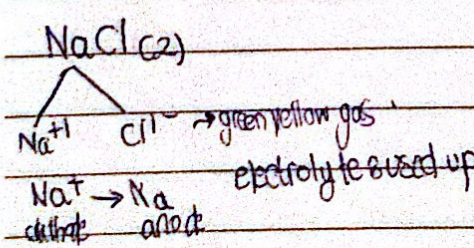 NaCl (2)
Na+1 Cl1- → green yellow gas
electrolyte is used up
Na+ → Na
cathode anode